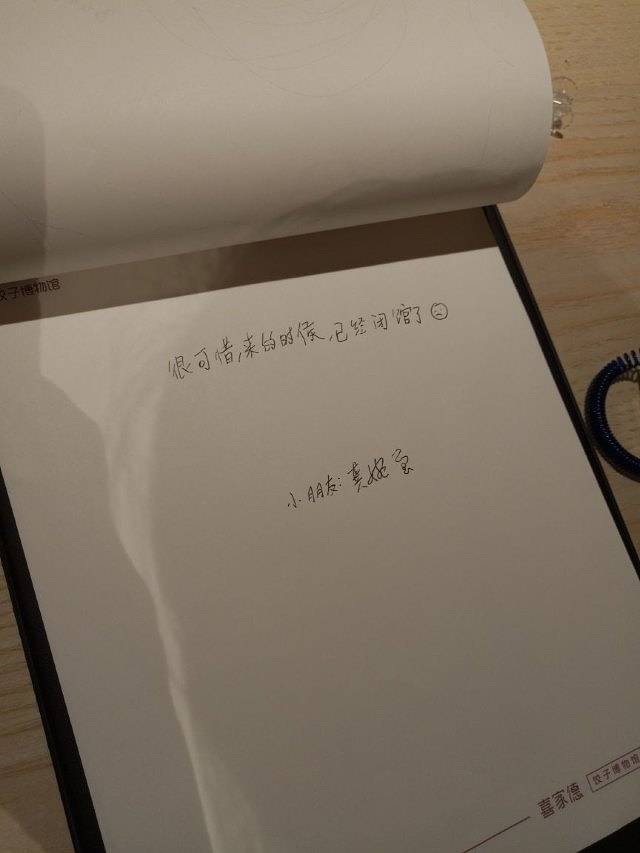 饺子博物馆
很可惜,来的时候,已经闭馆了☹
小朋友:龚婉宝
喜家德 饺子博物馆